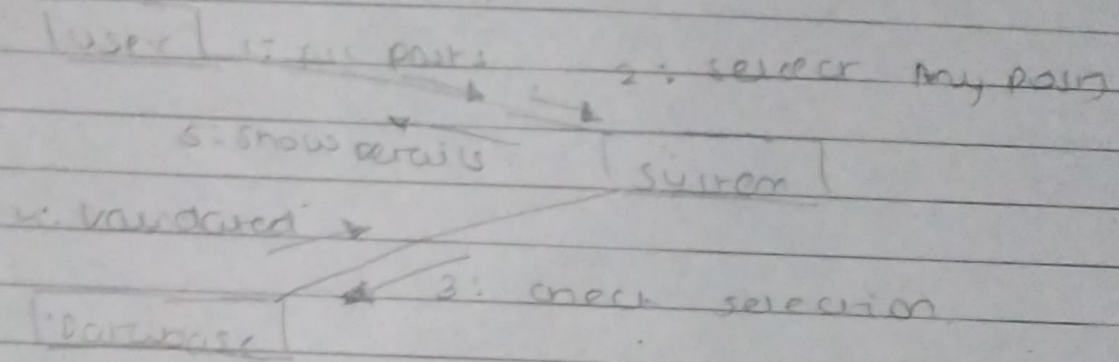 User 1: pairs 2: select any pair
5: Show details
System
4: Validated
3: check selection
:Database